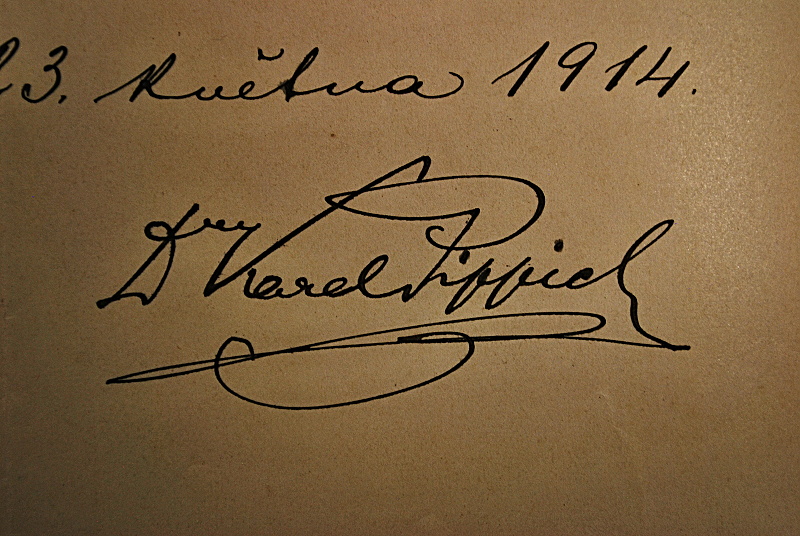 23. května 1914.
Dr Karel Pippich